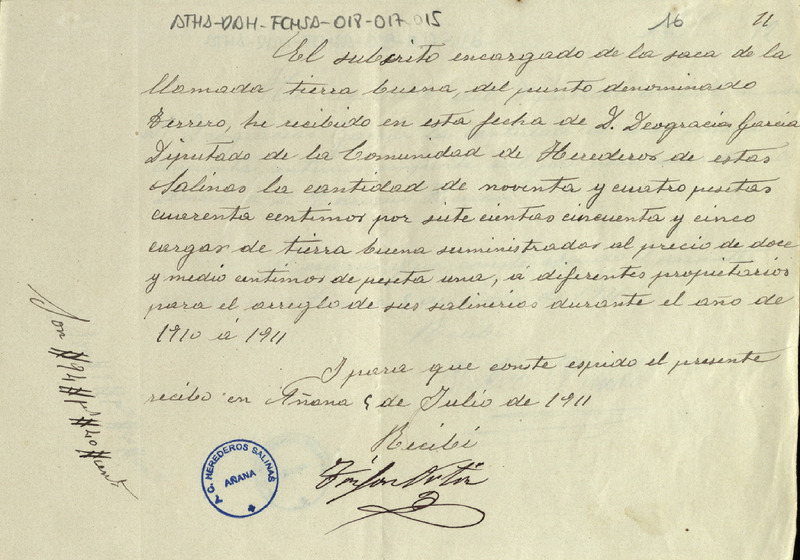 ATHA-DAH-FCHSA-018-017-015
16
11
El subscrito encargado de la saca de la
llamada tierra buena, del punto denominado
Terrero, he recibido en esta fecha de D. Deogracias García
Diputado de la Comunidad de Herederos de estas
Salinas la cantidad de noventa y cuatro pesetas
cuarenta centimos por siete cientas cincuenta y cinco
cargas de tierra buena suministradas al precio de doce
y medio centimos de peseta una, á diferentes propietarios
para el arreglo de sus salinerios durante el año de
1910 á 1911
I para que conste espido el presente
recibo en Añana 5 de Julio de 1911
Recibí
Son #94# #40# cent
C. HEREDEROS SALINAS
AÑANA